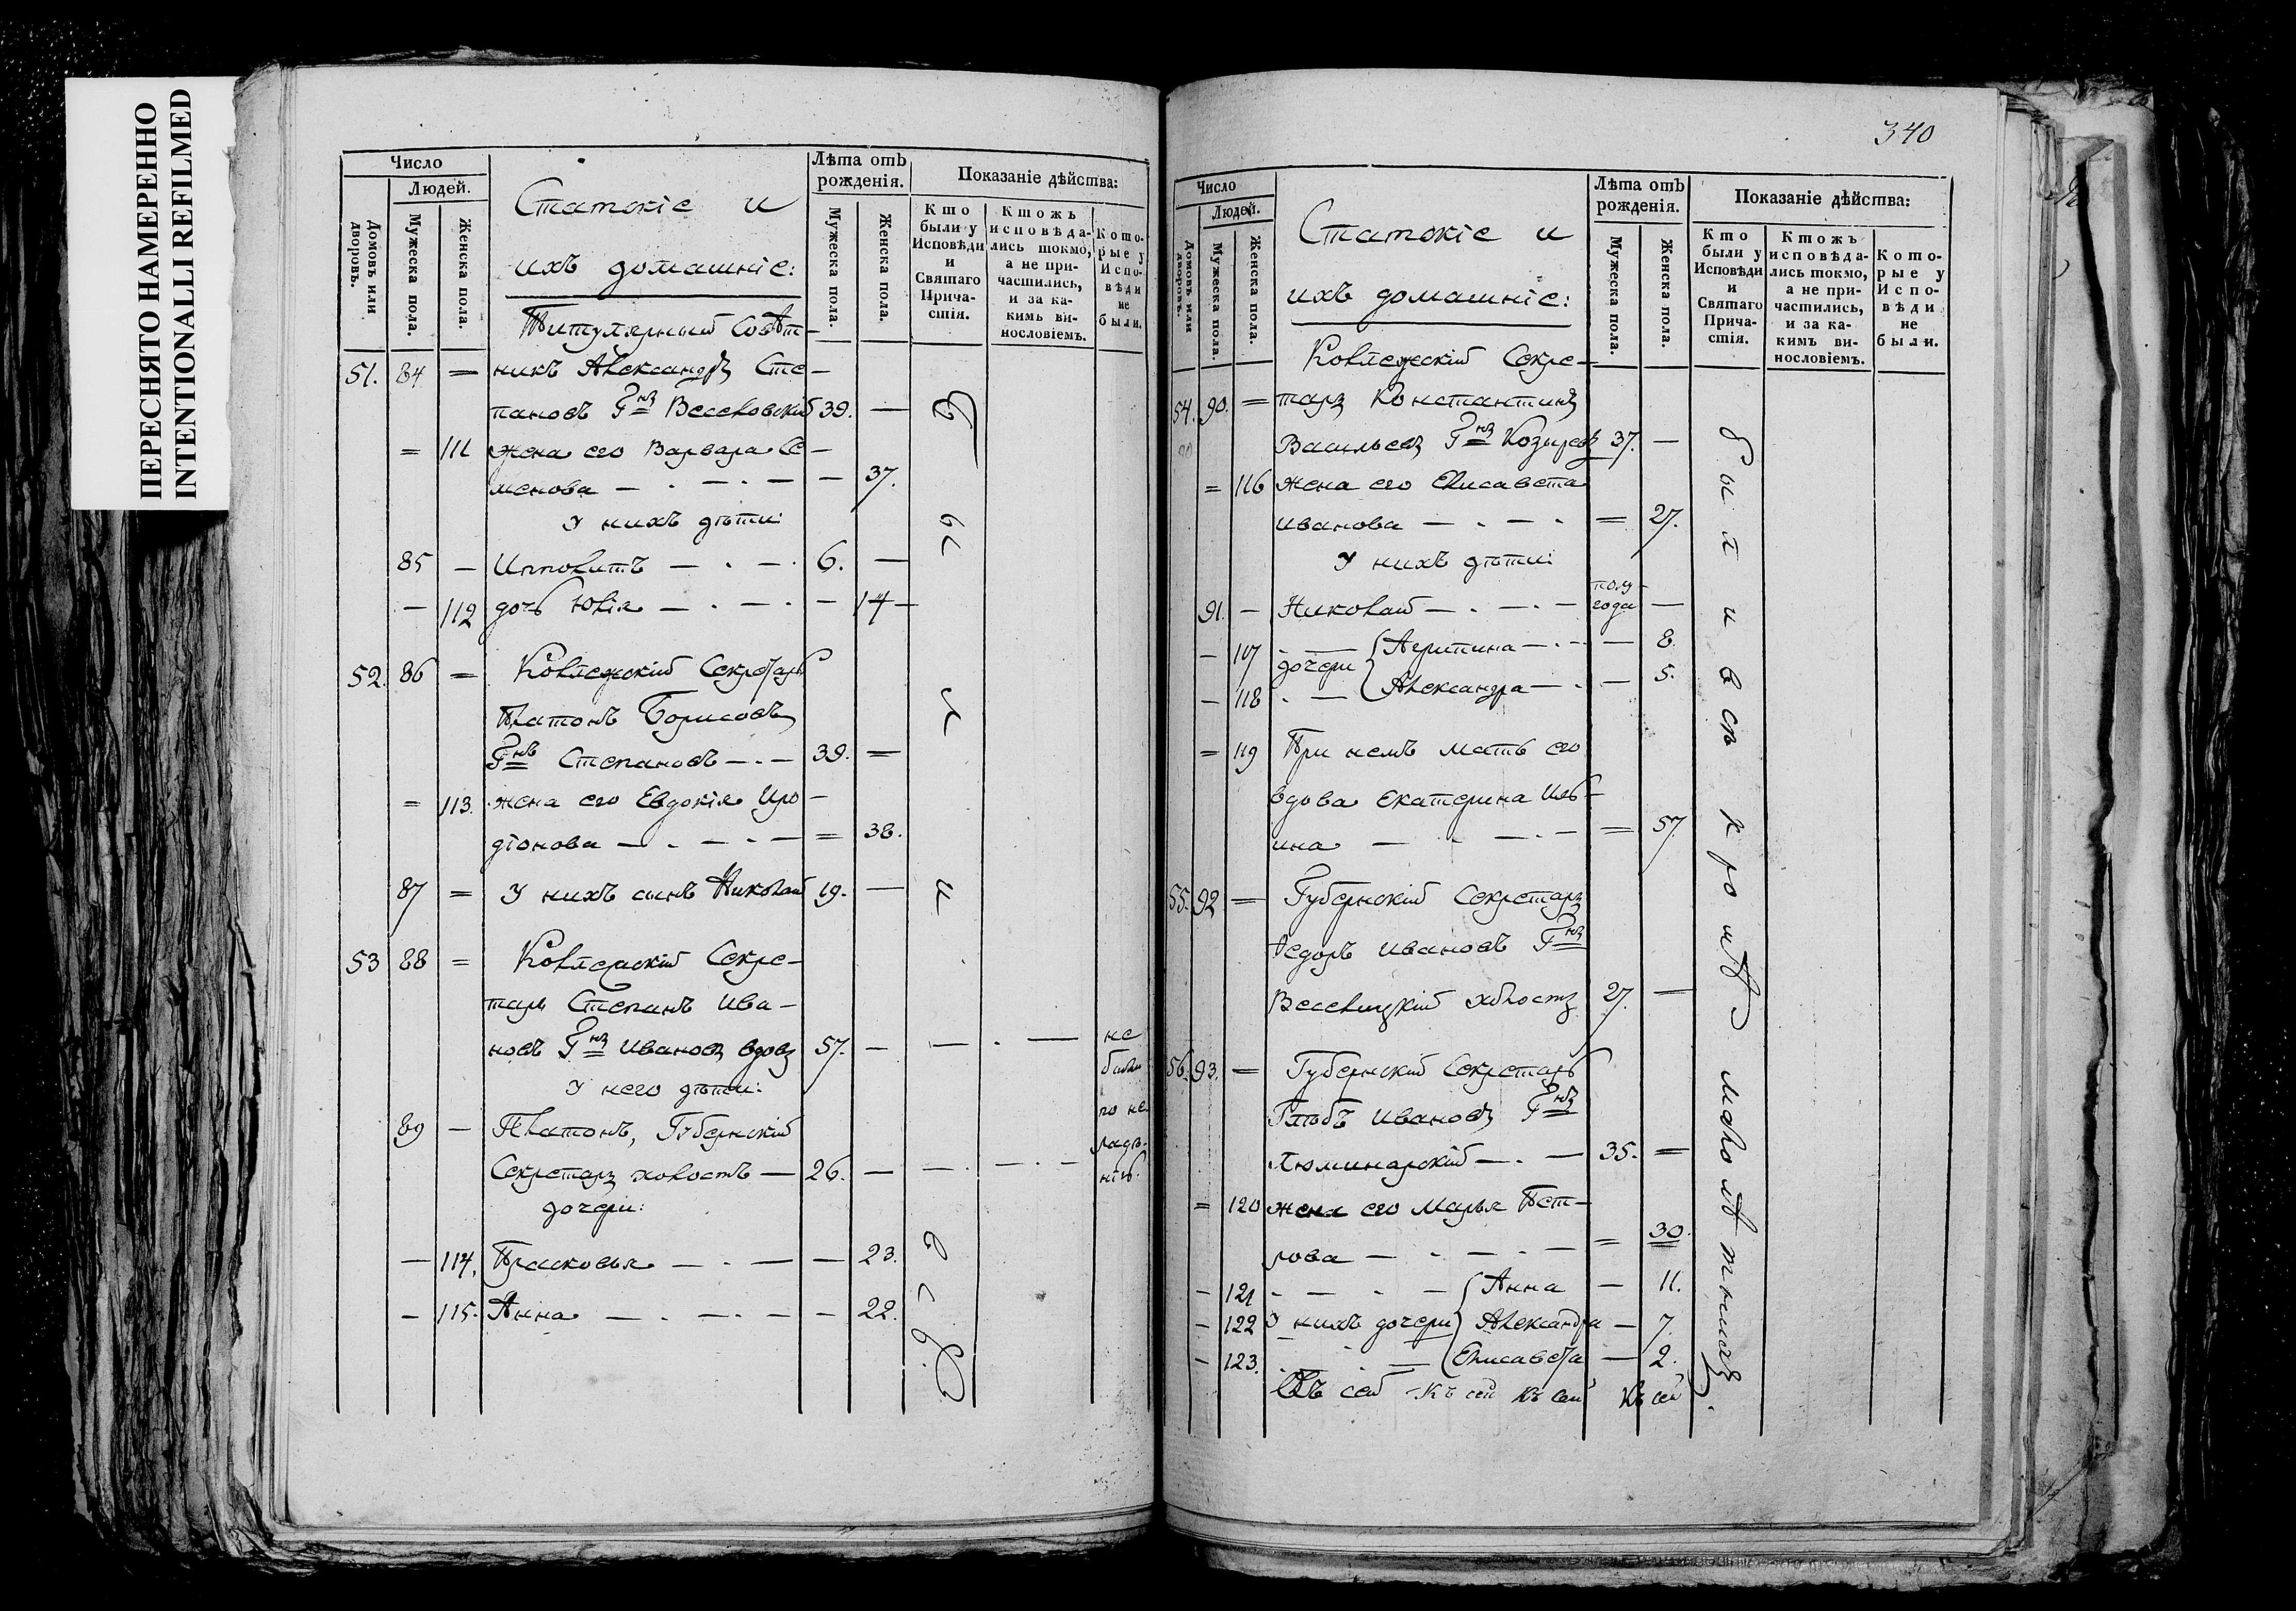 ПЕРЕСНЯТО НАМЕРЕННО
INTENTIONALLI REFILMED
Число
Людей.
Домовъ или дворовъ.
Мужеска пола.
Женска пола.
Статскіе и
ихъ домашніе:
Лѣта отъ
рожденія.
Мужеска пола.
Женска пола.
Показаніе дѣйства:
Кто
были у
Исповѣди
и
Святаго
Прича-
стія.
Ктожъ
исповѣда-
лись токмо,
а не при-
частились,
и за ка-
кимъ ви-
нословіемъ.
Кото-
рые у
Испо-
вѣди
не
были.
Титулярный Совѣт-
51. 84 = никъ Александръ Сте-
пановъ Гнъ Веселовскій 39. —
= 111 жена его Варвара Се-
менова — · — · — — 37.
У нихъ дѣти:
85 — Ипполитъ — · — · 6. —
— 112 дочь Юлія — · — · — 14 —
52. 86 = Коллежскій Секретарь
Платонъ Борисовъ
Гнъ Степановъ — · — 39. =
= 113. жена его Евдокія Иро-
діонова — · — · — = 38.
87 = У нихъ сынъ Николай 19. —
53 88 = Коллежскій Секре-
тарь Степанъ Ива-
новъ Гнъ Ивановъ вдовъ 57. — — · — не
были
У него дѣти:
по не
89 — Платонъ, Губернскій
радѣ-
Секретарь холостъ — 26. — — · — · — нію.
дочери:
— 114. Прасковья — · — — 23.
— 115. Анна — · — · — — 22.
340
Число
Людей.
Домовъ или дворовъ.
Мужеска пола.
Женска пола.
Статскіе и
ихъ домашніе:
Лѣта отъ
рожденія.
Мужеска пола.
Женска пола.
Показаніе дѣйства:
Кто
были у
Исповѣди
и
Святаго
Прича-
стія.
Ктожъ
исповѣда-
лись токмо,
а не при-
частились,
и за ка-
кимъ ви-
нословіемъ.
Кото-
рые у
Испо-
вѣди
не
были.
Коллежскій Секре-
54. 90. = тарь Константинъ
Васильевъ Гнъ Козыревъ 37. —
= 116 жена его Елисавета
Иванова — · — · = 27.
У нихъ дѣти:
полу-
91. — Николай — · — · — года —
— 117 · — Агрипина — · — — 8
дочери
— 118 · — Александра — · — 5.
= 119 При немъ мать его
вдова Екатерина Иль-
ина — · — · — = 57
55. 92 = Губернскій Секретарь
Ѳедоръ Ивановъ Гнъ
Веселицкій холостъ 27. —
56. 93. = Губернскій Секретарь
Глѣбъ Ивановъ Гнъ
Люминарскій — · — 35. =
= 120 жена его Марья Пет-
рова — · — · — = 30
— 121 · — · — Анна — 11.
— 122 У нихъ дочери Александра — 7.
— 123. · — · — Елисавета — 2.
Къ сей Къ сей Къ сей Къ сей
были всѣ кромѣ малолѣтныхъ.